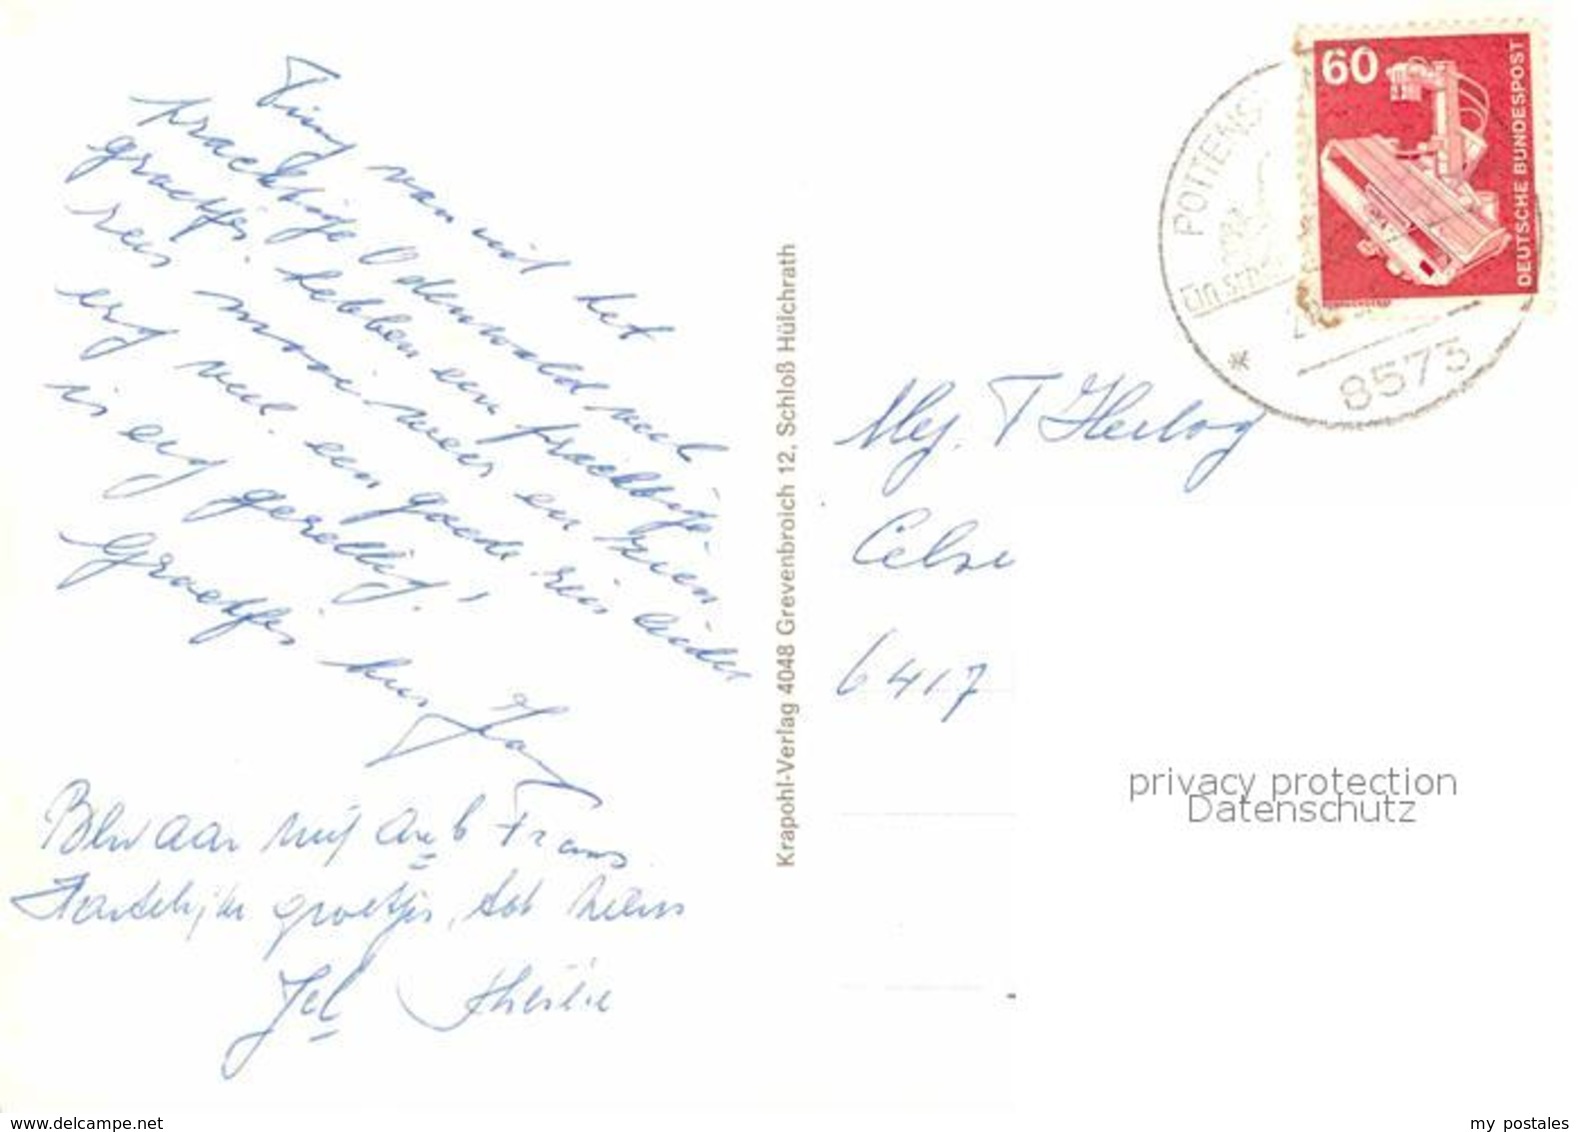 Tiny van uit het
prachtige Odenwald veel
groetjes hebben een prachtige
reis mooi weer en zien
erg veel. een goede reis leider
is erg gezellig!
Groetjes
aan Frans
Hartelijke groetjes, tot ziens
Krapohl-Verlag 4048 Grevenbroich 12, Schloß Hülchrath
60
DEUTSCHE BUNDESPOST
POTTENS
8573
Mej. T Hertog
6417
privacy protection
Datenschutz
www.delcampe.net
my postales